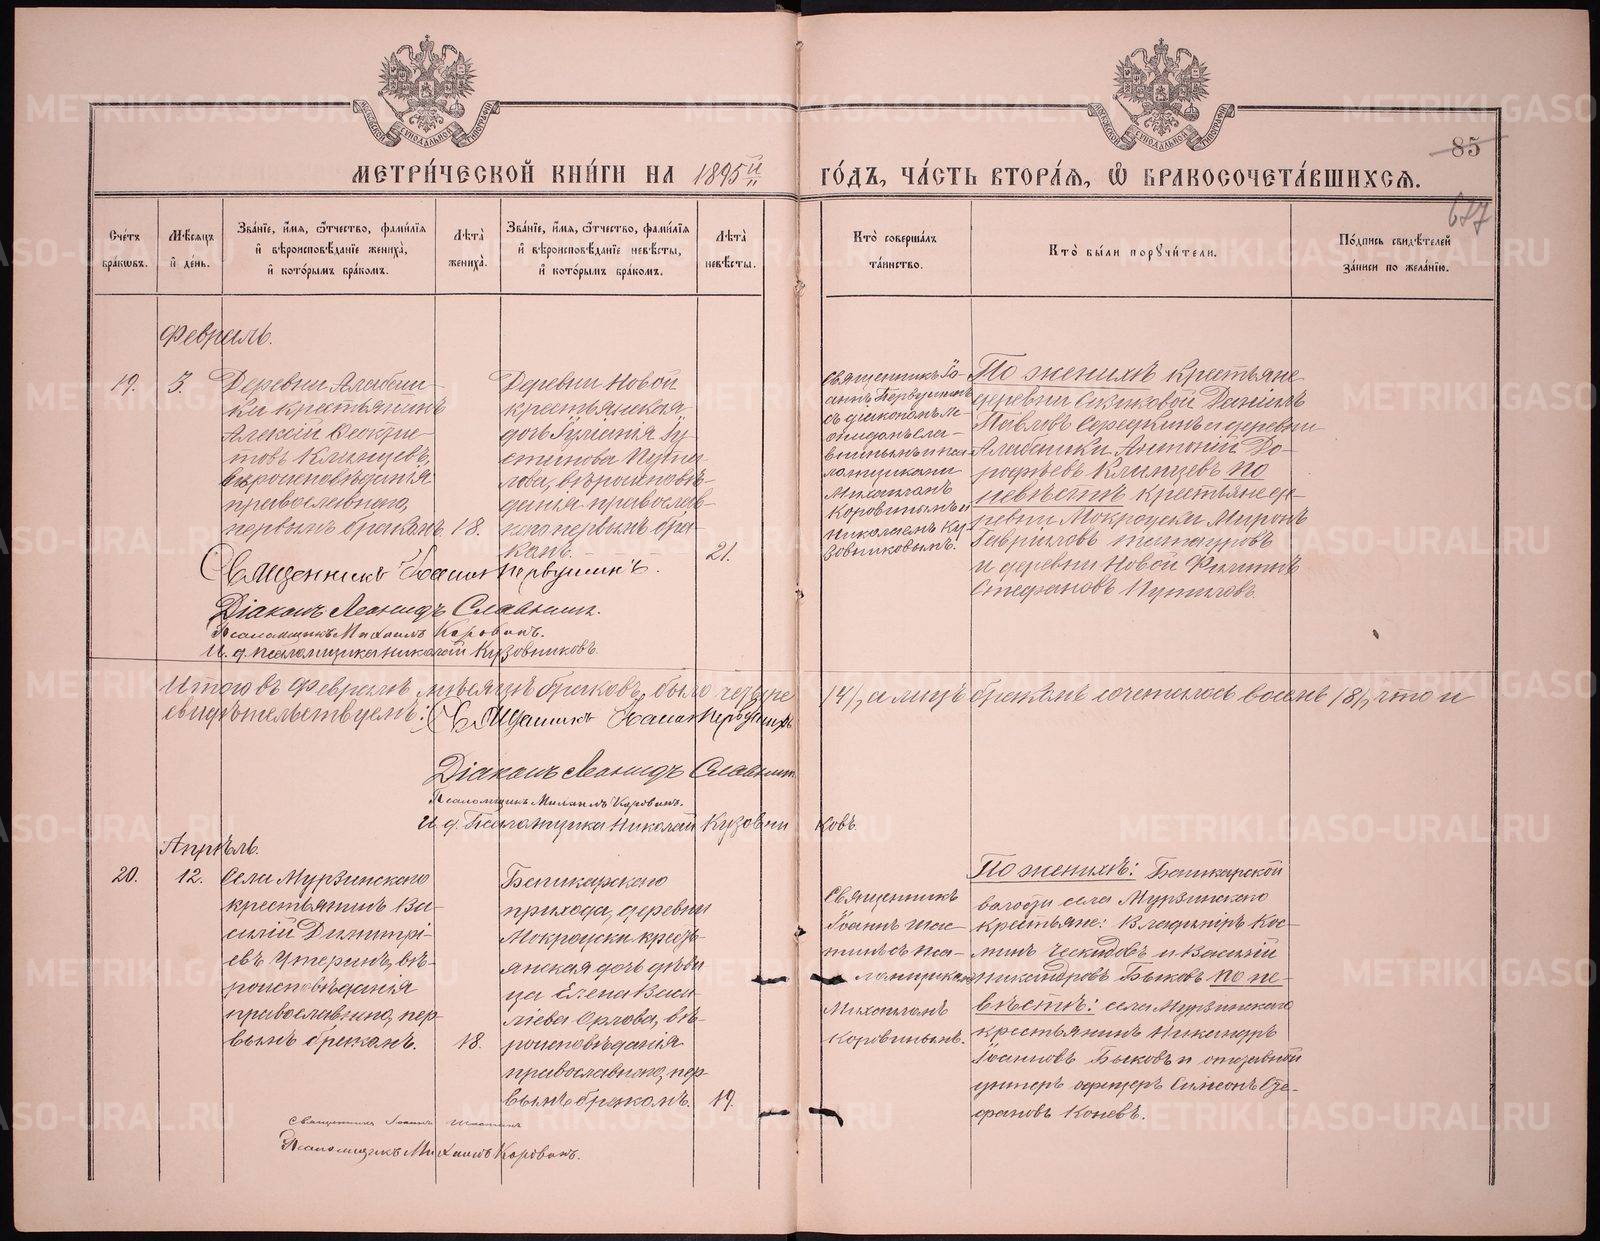 МОСКОВСКОЙ СѴНОДАЛЬНОЙ ТИПОГРАФІИ
МОСКОВСКОЙ СѴНОДАЛЬНОЙ ТИПОГРАФІИ
85
МЕТРИ́ЧЕСКОЙ КНИ́ГИ НА 1895й ГО́ДЪ, ЧА́СТЬ ВТОРА́Я, Ѡ БРАКОСОЧЕТА́ВШИХСЯ.
677
Сче́тъ бра́кѡвъ.
Мѣ́сяцъ и҆ де́нь.
Зва́нїе, и҆́мя, ѻ҆́тчество, фами́лїя и҆ вѣроисповѣ́данїе жениха̀, и҆ кото́рымъ бра́комъ.
Лѣ́та жениха̀.
Зва́нїе, и҆́мя, ѻ҆́тчество, фами́лїя и҆ вѣроисповѣ́данїе невѣ́сты, и҆ кото́рымъ бра́комъ.
Лѣ́та невѣ́сты.
Кто̀ соверша́лъ та́инство.
Кто̀ бы́ли порꙋчи́тели.
По́дпись свидѣ́телей за́писи по жела́нїю.
Февраль.
19.
3.
Деревни Алабаш-
ки крестьянинъ
Алексій
Клещевъ,
вѣроисповѣданія
православнаго,
первымъ бракомъ
18.
Деревни Новой
крестьянская
дочь Іуліанія Іу-
стинова Пути-
лова, вѣроисповѣ-
данія православ-
наго первымъ бра-
комъ.
21.
Священникъ Іо-
аннъ Первушинъ
съ діакономъ Ле-
онидомъ Сла-
внинымъ и пса-
ломщиками
Михаиломъ
Коровинымъ и
Николаемъ Ку-
зовниковымъ.
По женихѣ крестьяне
деревни Сизиковой Даніилъ
Павловъ Середкинъ и деревни
Алабашки Антоній До-
рофѣевъ Клещевъ по
невѣстѣ крестьяне де-
ревни Мокроуски Миронъ
Гавріиловъ Татауровъ
и деревни Новой Филипъ
Стефановъ Путиловъ.
Священникъ Іоаннъ Первушинъ.
Діаконъ Леонидъ Славнинъ.
Псаломщикъ Михаилъ Коровинъ.
И. д. псаломщика Николай Кузовниковъ.
Итого въ Февралѣ мѣсяцѣ браковъ было четыре /4/, а лицъ бракомъ сочеталось восемь /8/, что и
свидѣтельствуемъ: Священникъ Іоаннъ Первушинъ
Діаконъ Леонидъ Славнинъ
Псаломщикъ Михаилъ Коровинъ.
И. д. Псаломщика Николай Кузовниковъ.
Апрѣль.
20.
12.
Села Мурзинскаго
крестьянинъ Ва-
силій Димитрі-
евъ Утеринъ, вѣ-
роисповѣданія
православнаго, пер-
вымъ бракомъ.
18.
Башкарскаго
прихода, деревни
Мокроуски кресть-
янская дочь дѣви-
ца Елена Васи-
ліева Орлова, вѣ-
роисповѣданія
православнаго, пер-
вымъ бракомъ.
19.
Священникъ
Іоаннъ Шас-
тинъ съ пса-
ломщикомъ
Михаиломъ
Коровинымъ.
По женихѣ: Башкарской
волости села Мурзинскаго
крестьяне: Владиміръ Кос-
минъ Ческидовъ и Василій
Никандровъ Быковъ по не-
вѣстѣ: села Мурзинскаго
крестьянинъ Никандръ
Іоанновъ Быковъ и отставной
унтеръ офицеръ Симеонъ Сте-
фановъ Коневъ.
Священникъ Іоаннъ Шастинъ
Псаломщикъ Михаилъ Коровинъ.